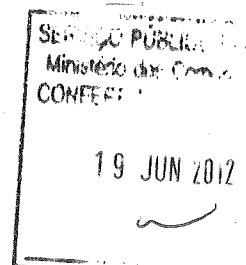 SERVIÇO PÚBLICO
Ministério das Com
CONFERE
19 JUN 2012